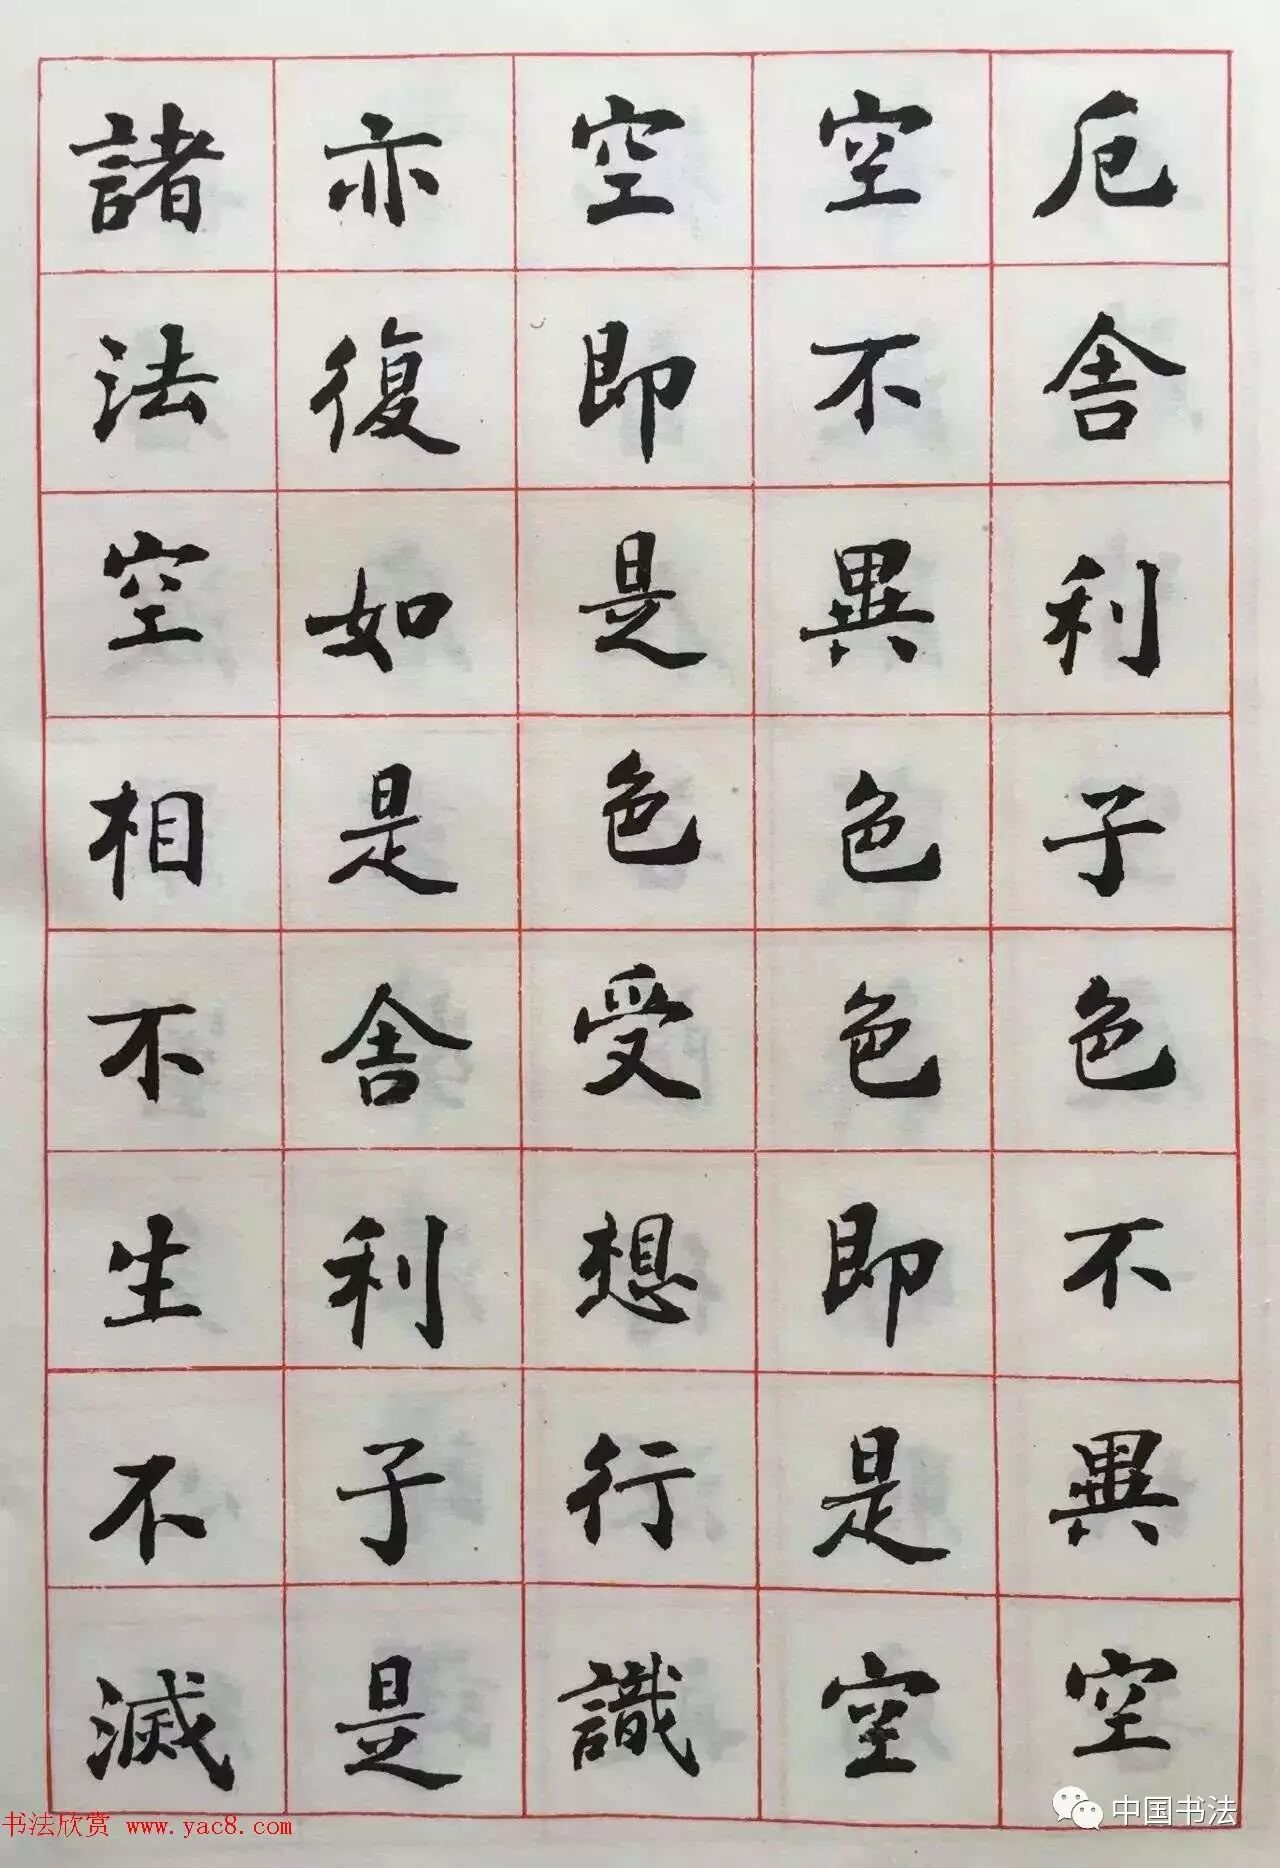 厄舍利子色不異空
空不異色色即是空
空即是色受想行識
亦復如是舍利子是
諸法空相不生不滅
书法欣赏 www.yac8.com
中国书法